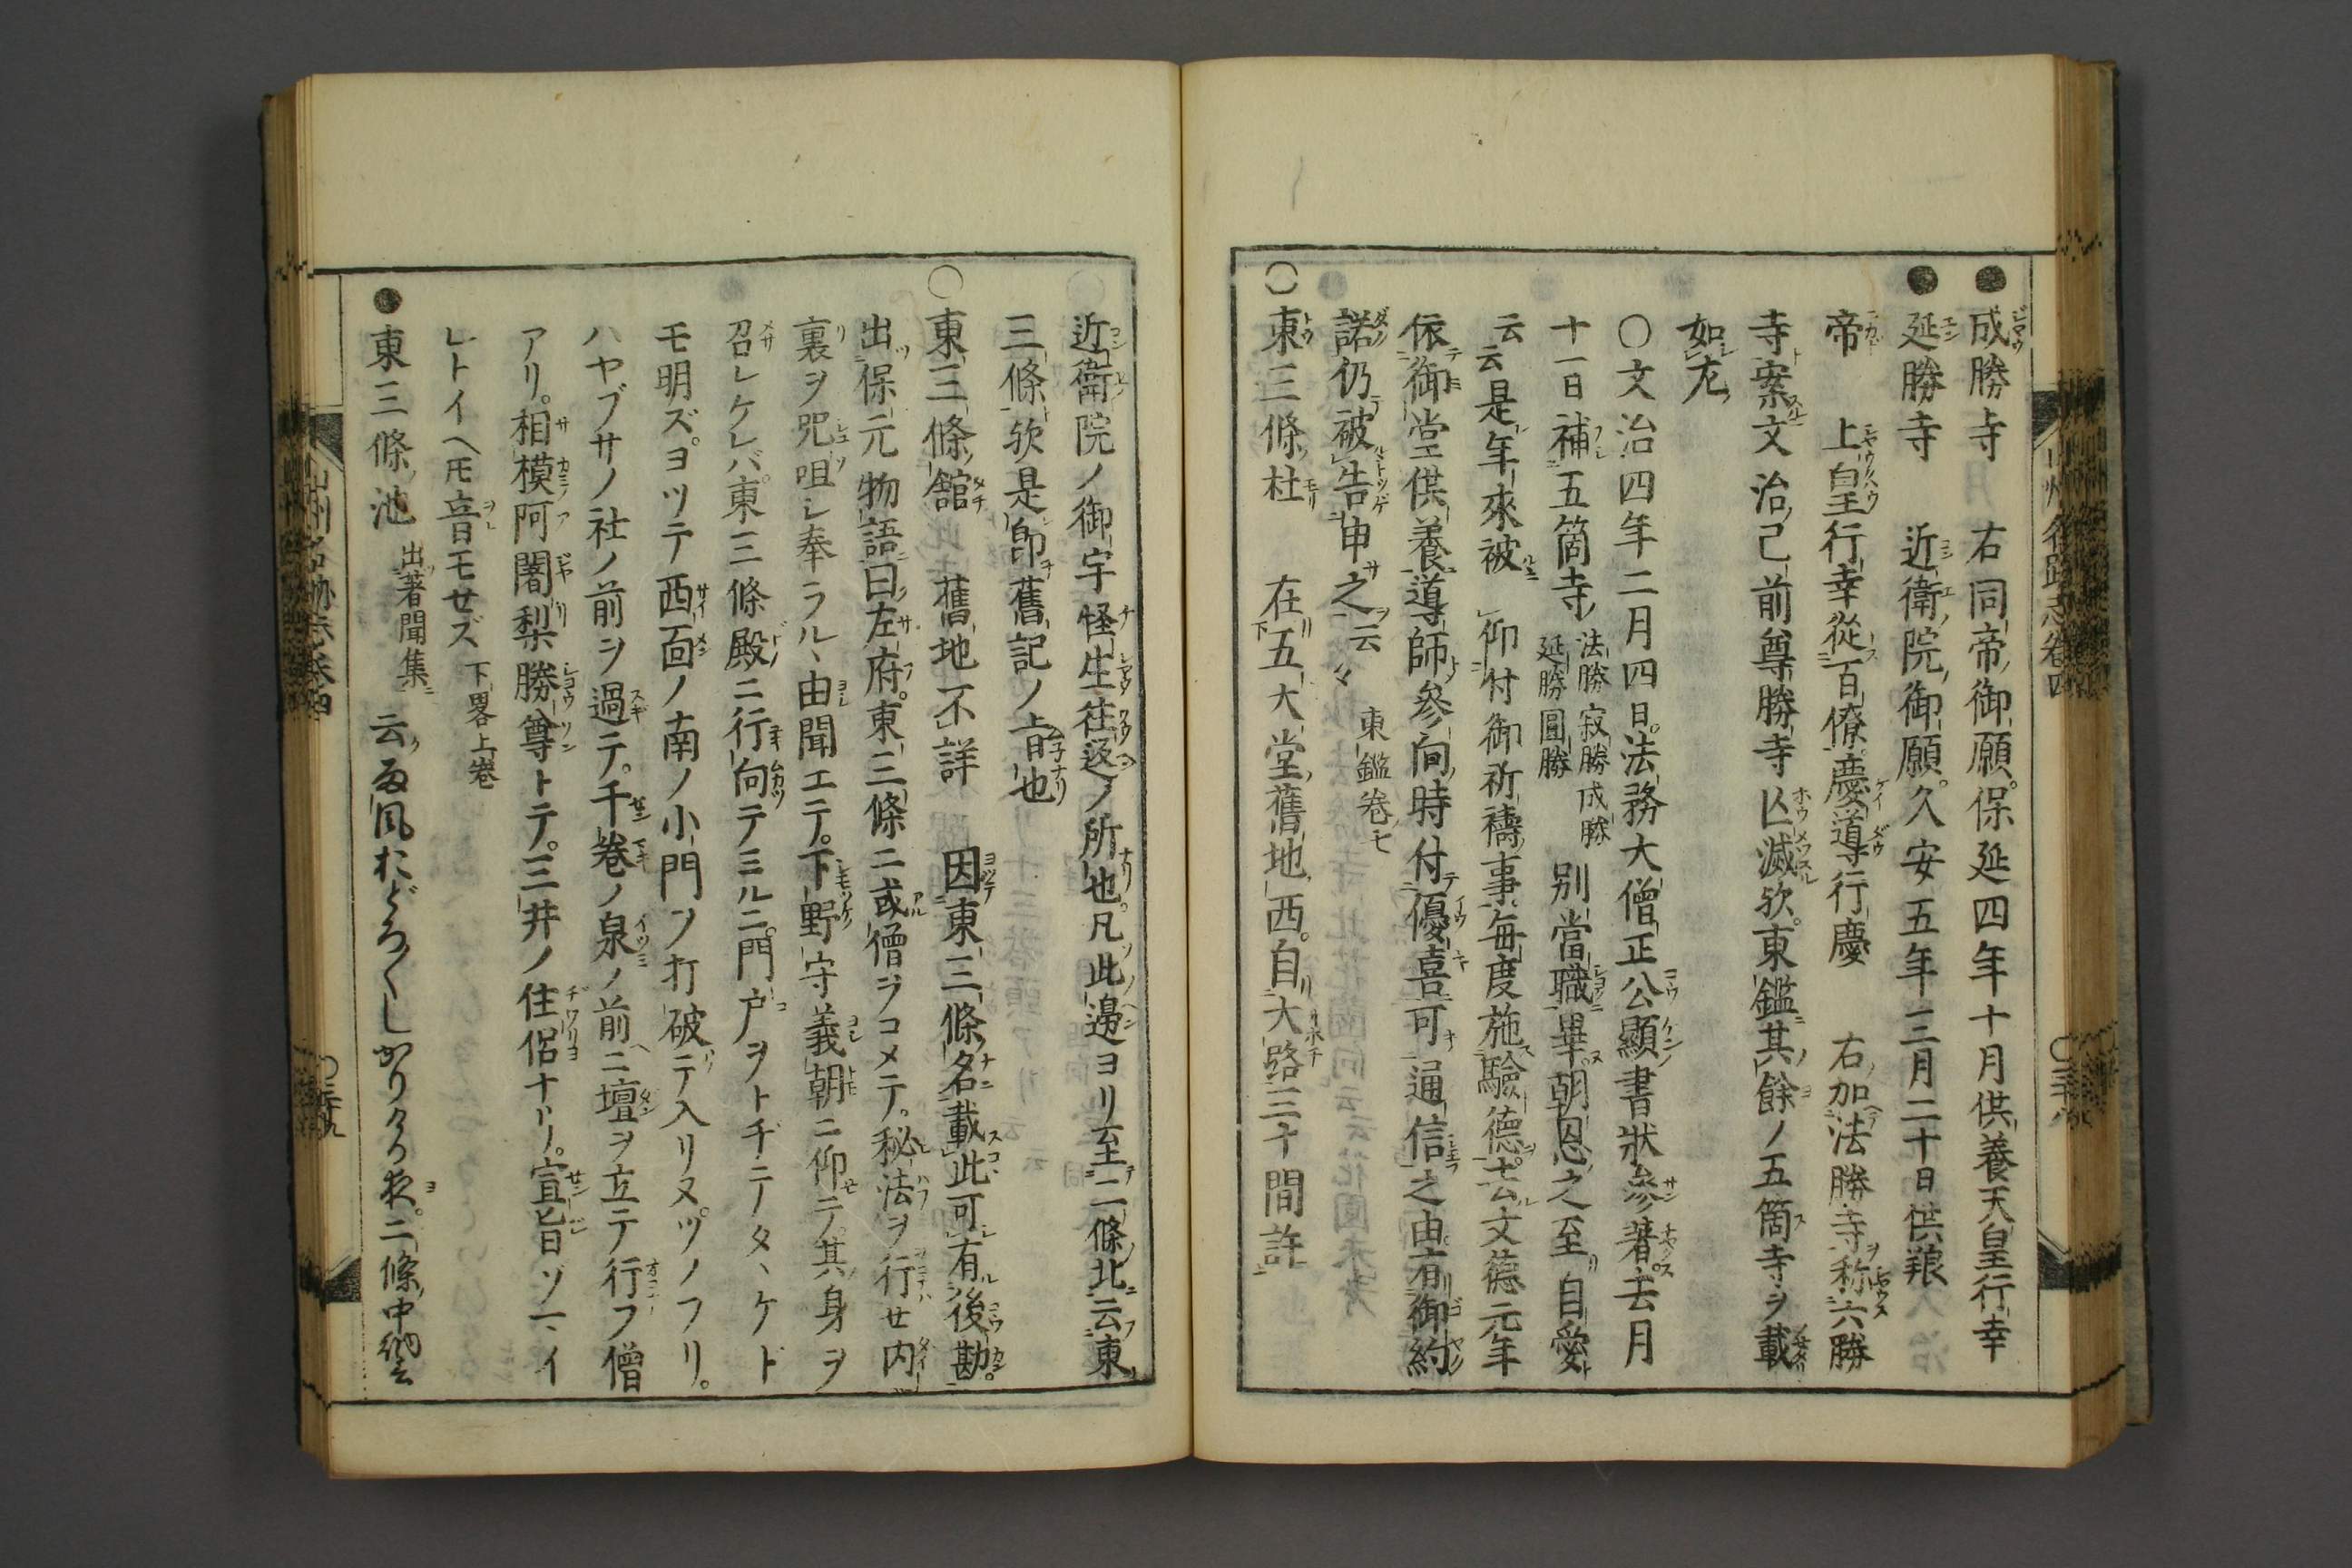 ●成勝寺　右同帝御願。保延四年十月供養天皇行幸
●延勝寺　近衛院御願。久安五年三月二十日供養
帝　上皇行幸從百僚。慶導行慶　右加法勝寺称六勝
寺案文治已前尊勝寺亡滅欤。東鑑其餘ノ五箇寺ヲ載
如左
〇文治四年二月四日。法務大僧正公顯書狀參著去月
十一日補五箇寺法勝　寂勝　成勝
延勝　圓勝別當職畢朝恩之至自愛
云云是年來被仰付御祈禱事毎度施驗德去文德元年
依御堂供養導師參向時付優喜可通信之由有御約
諾仍被告申之云々東鑑卷七
〇東三條杜　在五大堂舊地西。自大路三十間許
近衛院ノ御宇怪生徃返ノ所也。凡此邊ヨリ至二條北云東
三條欤是卽舊記ノ旨也
〇東三條館　舊地不詳　因東三條名載此可有後勘。
出保元物語曰左府。東三條ニ或僧ヲコメテ。秘法ヲ行セ内
裏ヲ咒咀シ奉ラル、由聞エテ。下野守義朝ニ仰テ。其身ヲ
召レケレバ東三條殿ニ行向テミルニ。門戸ヲトヂテタ、ケド
モ明ズ。ヨツテ西面ノ南ノ小門ヲ打破テ入リヌ。ヅノフリ。
ハヤブサノ社ノ前ヲ過テ。千卷ノ泉ノ前ニ壇ヲ立テ行フ僧
アリ。相模阿闍梨勝尊トテ。三井ノ住侶ナリ。宣旨ゾ一、イ
レトイヘ𪜈音モせズ　下畧上卷
●東三條池　出著聞集云雨風おどろ〱しかりける夜。二條中納言
山州名跡志卷四
〇三十八
山州名跡志卷四
〇三十九